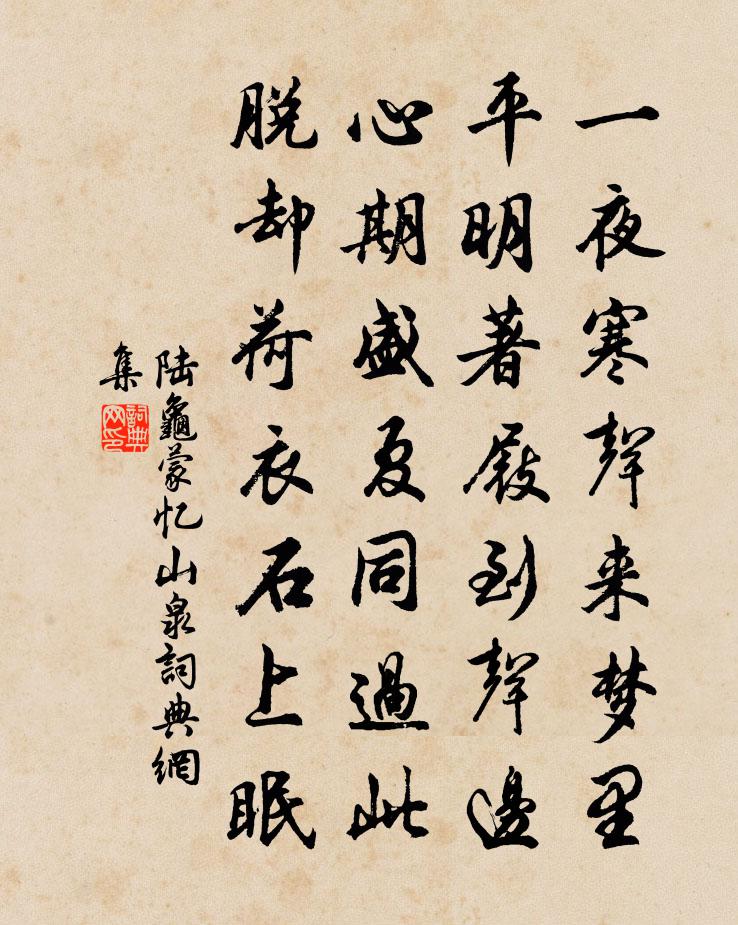 一夜寒聲来梦里
平明著屐到聲邊
心期盛夏同過此
脱却荷衣石上眠
陆龜蒙忆山泉詞典網
集
詞典网印